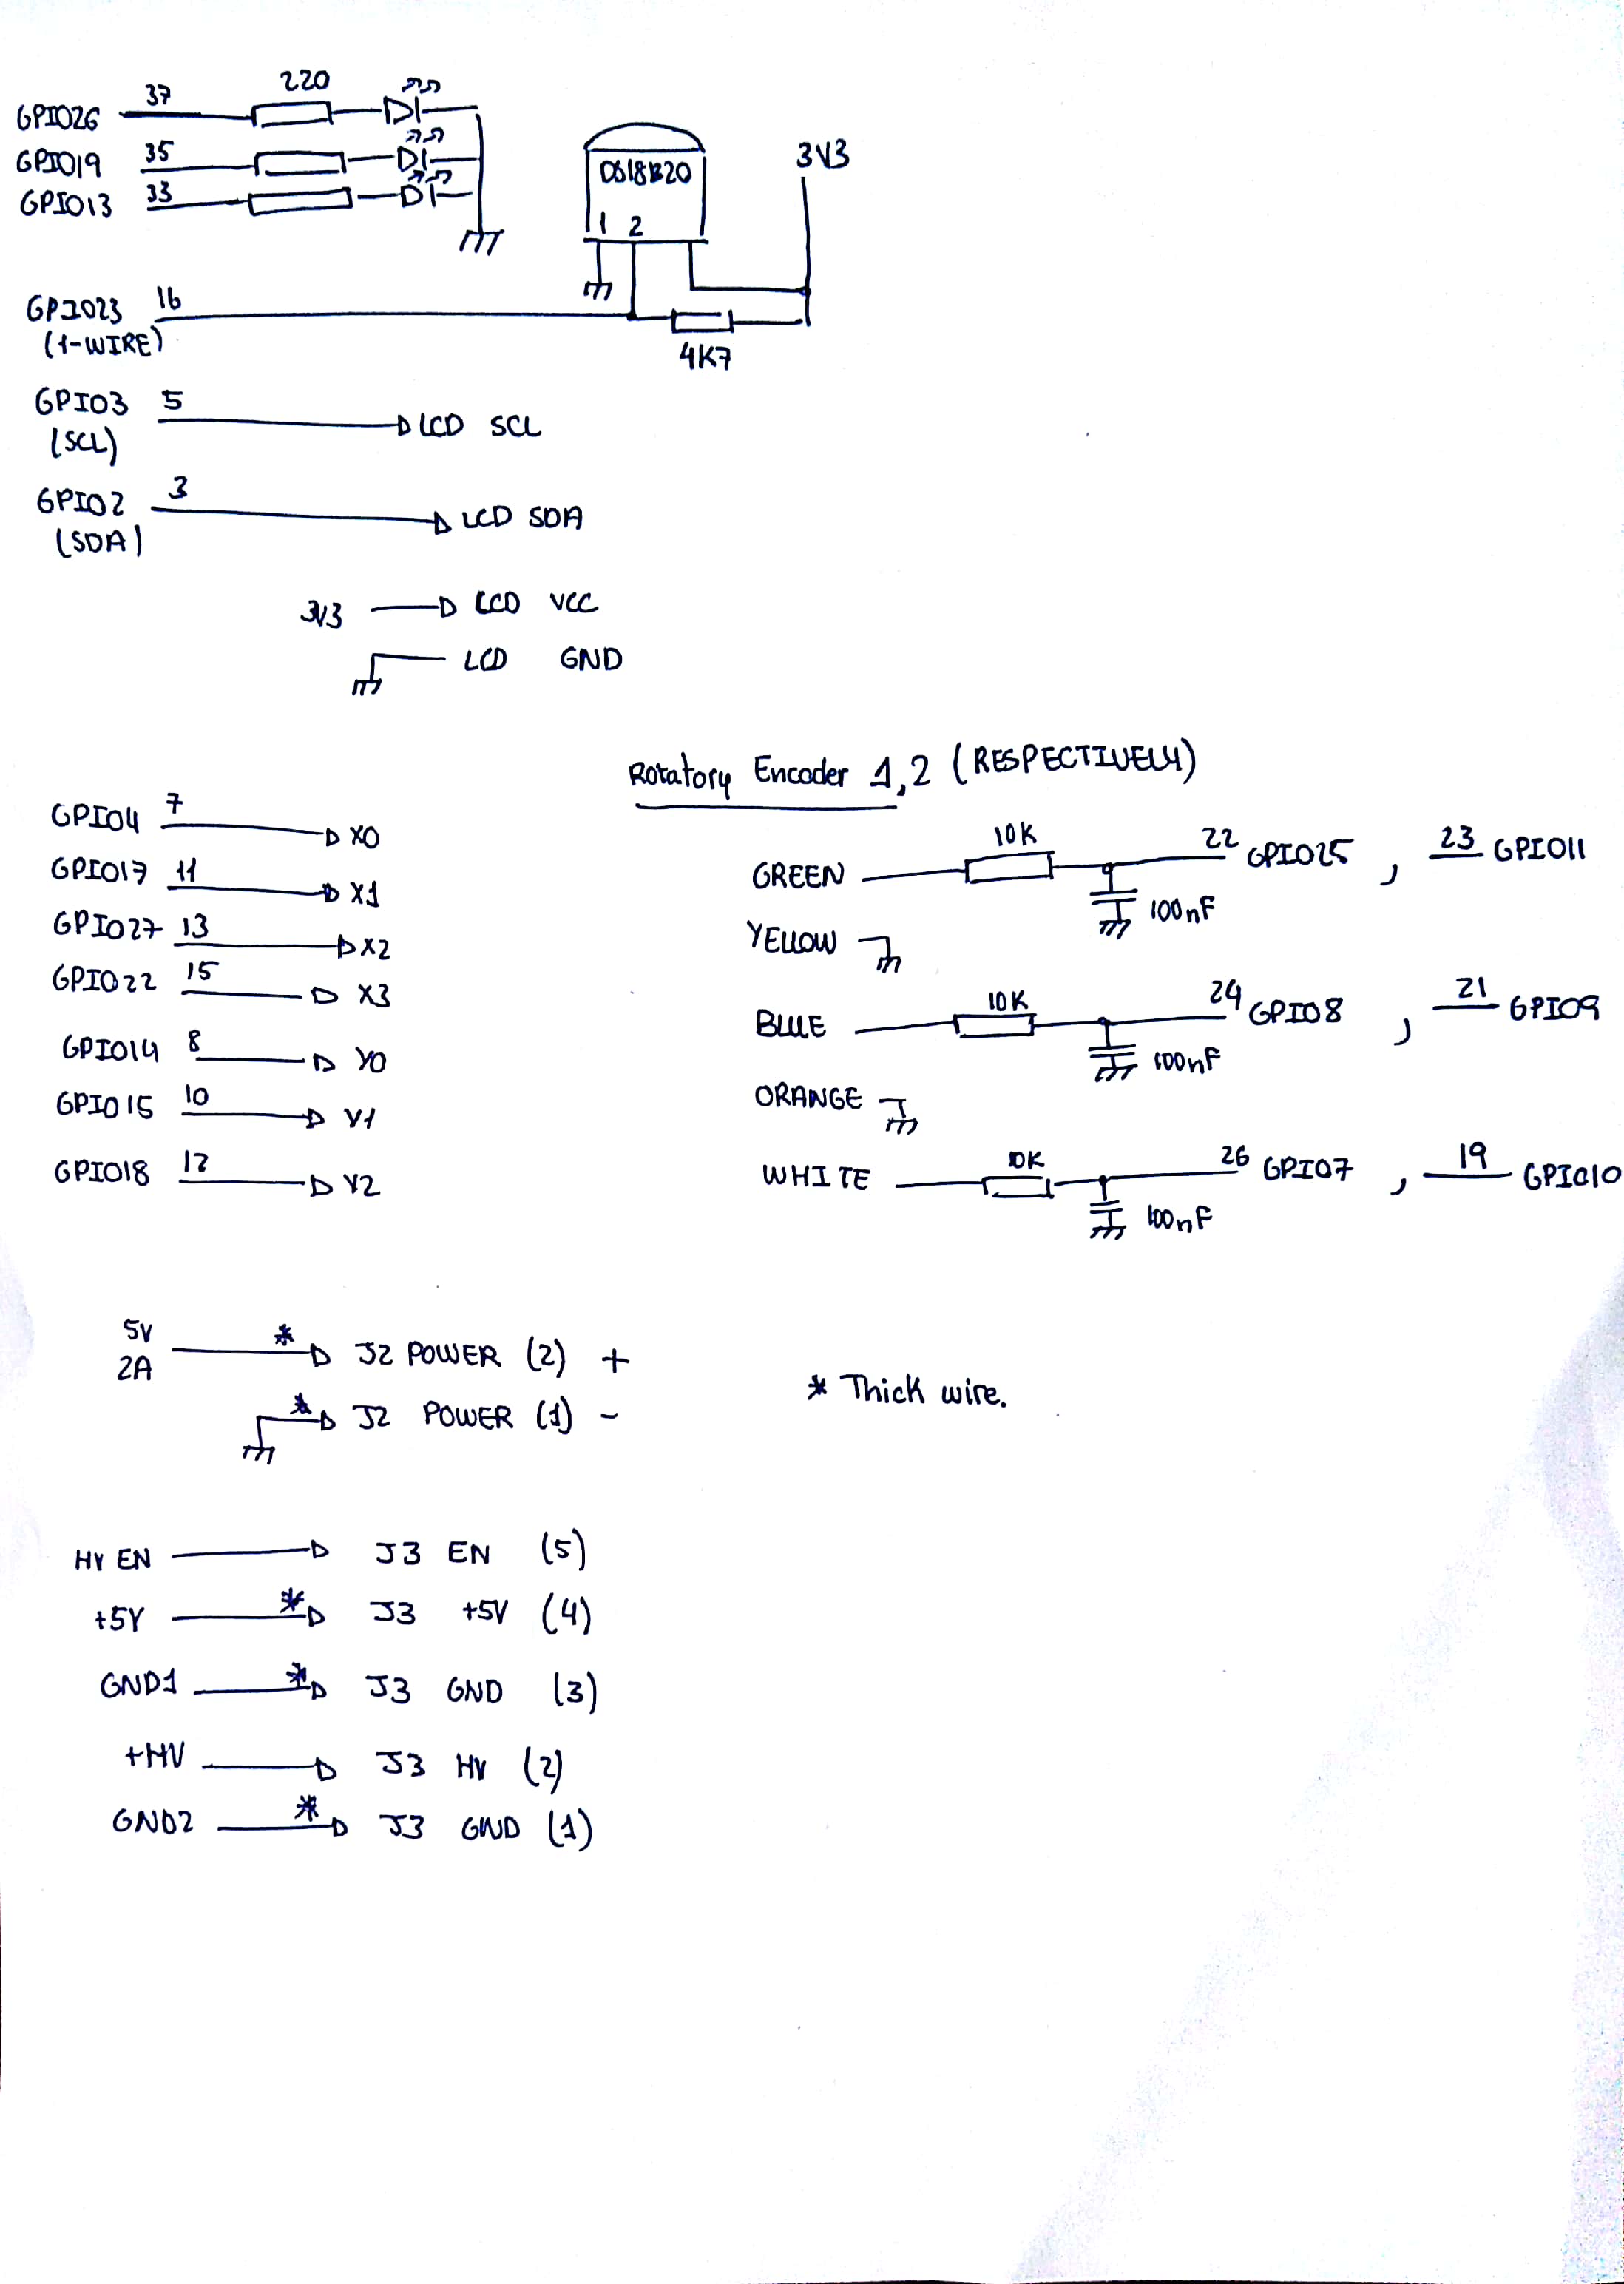 220
GPIO26 37
GPIO19 35
GPIO13 33
DS18B20
1 2
3V3
GPIO23 16
(1-WIRE)
4K7
GPIO3 5
(SCL)
LCD SCL
GPIO2 3
(SDA)
LCD SDA
3V3 LCD VCC
LCD GND
Rotatory Encoder 1,2 (RESPECTIVELY)
GPIO4 7 X0
GPIO17 11 X1
GPIO27 13 X2
GPIO22 15 X3
GPIO14 8 Y0
GPIO15 10 Y1
GPIO18 12 Y2
GREEN 10K 22 GPIO25 , 23 GPIO11
100nF
YELLOW
BLUE 10K 24 GPIO8 , 21 GPIO9
100nF
ORANGE
WHITE 10K 26 GPIO7 , 19 GPIO10
100nF
5V
2A
* J2 POWER (2) +
* J2 POWER (1) -
* Thick wire.
HV EN J3 EN (5)
+5V * J3 +5V (4)
GND1 * J3 GND (3)
+HV J3 HV (2)
GND2 * J3 GND (1)